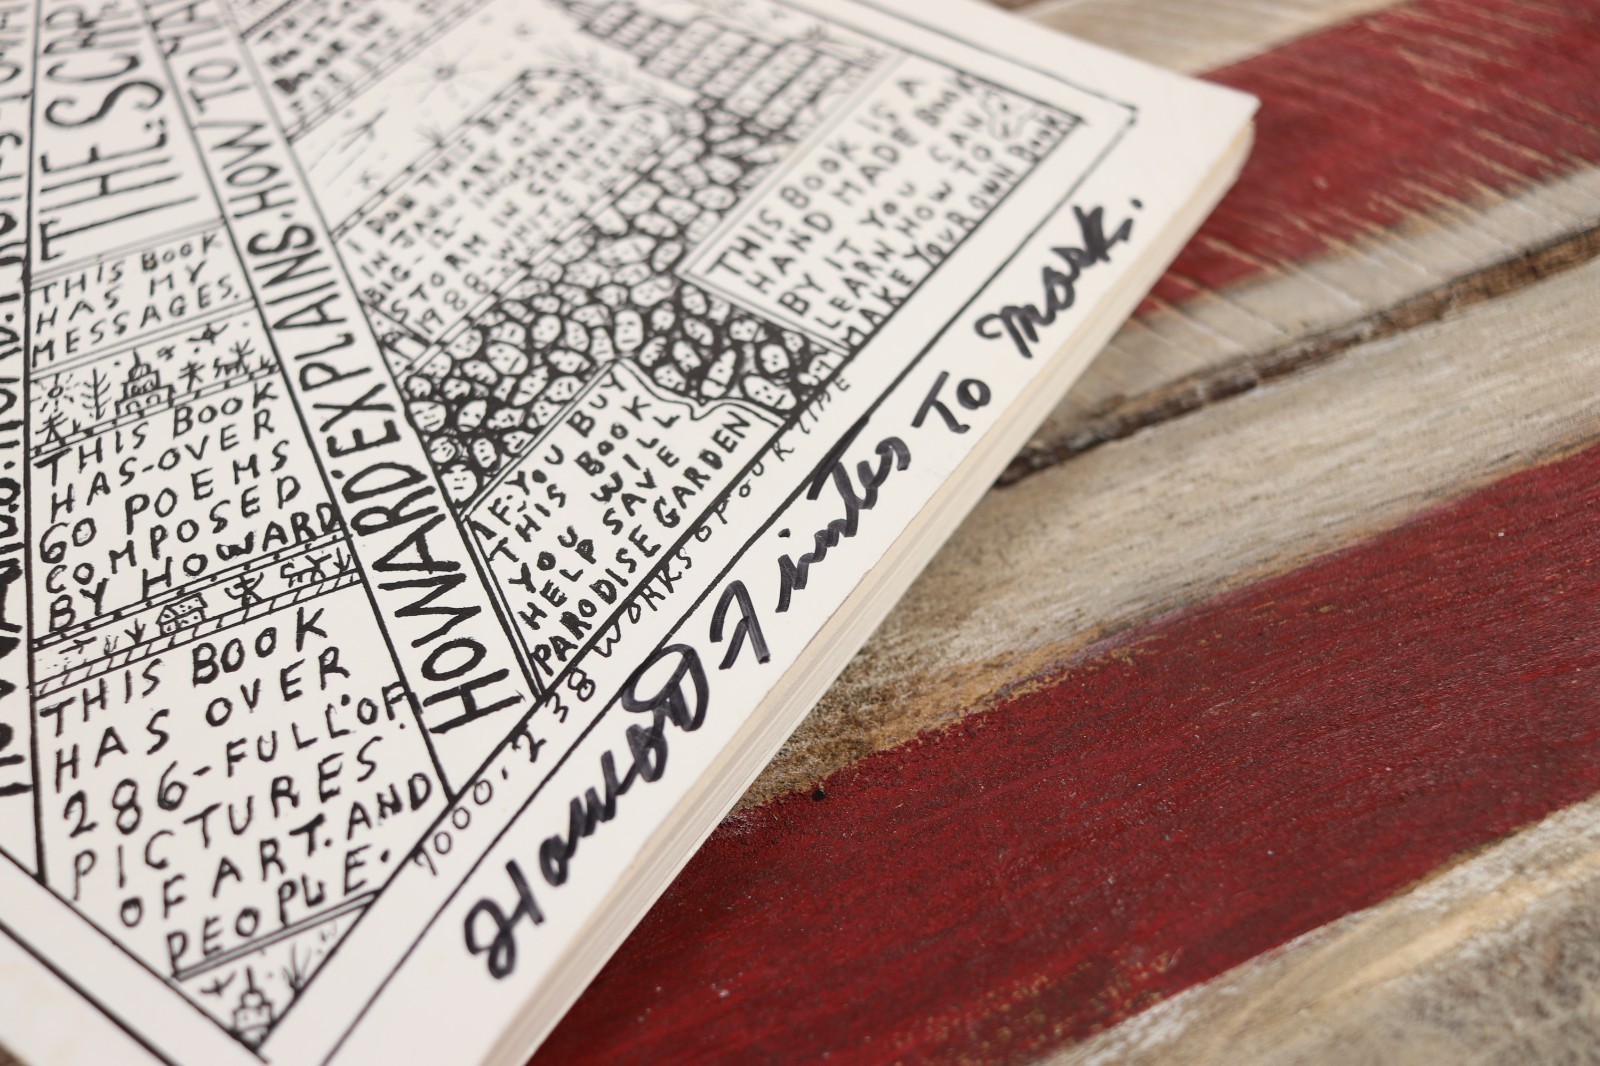 THE SCRAP
HOWARD EXPLAINS. HOW TO
THIS BOOK
HAS MY
MESSAGES.
THIS BOOK
HAS-OVER
60 POEMS
COMPOSED
BY HOWARD
THIS BOOK
HAS OVER
286-FULL.OF
PICTURES
OF ART. AND
PEOPLE.
I DON THIS BOOK
IN JANUARY
BIG-12-INCH SNOW
STORM IN GEORGIA
1988-WHITE
IF-YOU BUY
THIS BOOK
YOU WILL
HELP SAVE
PARODISE GARDEN
THIS BOOK IS A
HAND MADE BOOK
BY IT YOU CAN
LEARN HOW TO
MAKE YOUR OWN BOOK
7000.238 WORKS OF OUR TIME
Howard Finster To Mark.